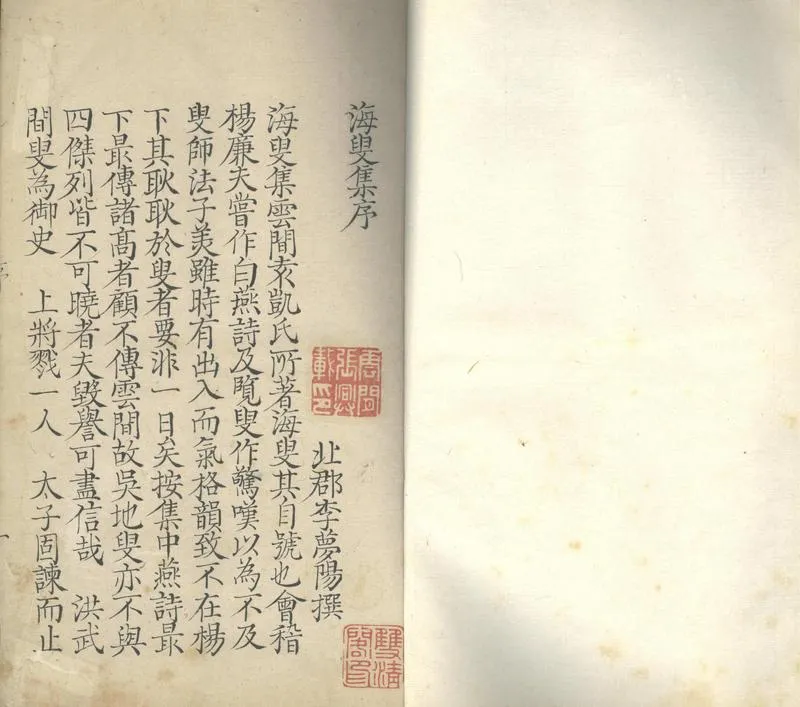 海叟集序
北郡李夢陽撰
海叟集雲間袁凱氏所著海叟其自號也會稽
楊廉夫嘗作白燕詩及覽叟作驚嘆以為不及
叟師法子美雖時有出入而氣格韻致不在楊
下其耿耿於叟者要非一日矣按集中燕詩最
下最傳諸髙者顧不傳雲間故吳地叟亦不與
四傑列皆不可曉者夫毀譽可盡信哉　洪武
間叟為御史　上將戮一人　太子固諫而止
雲間張興載印